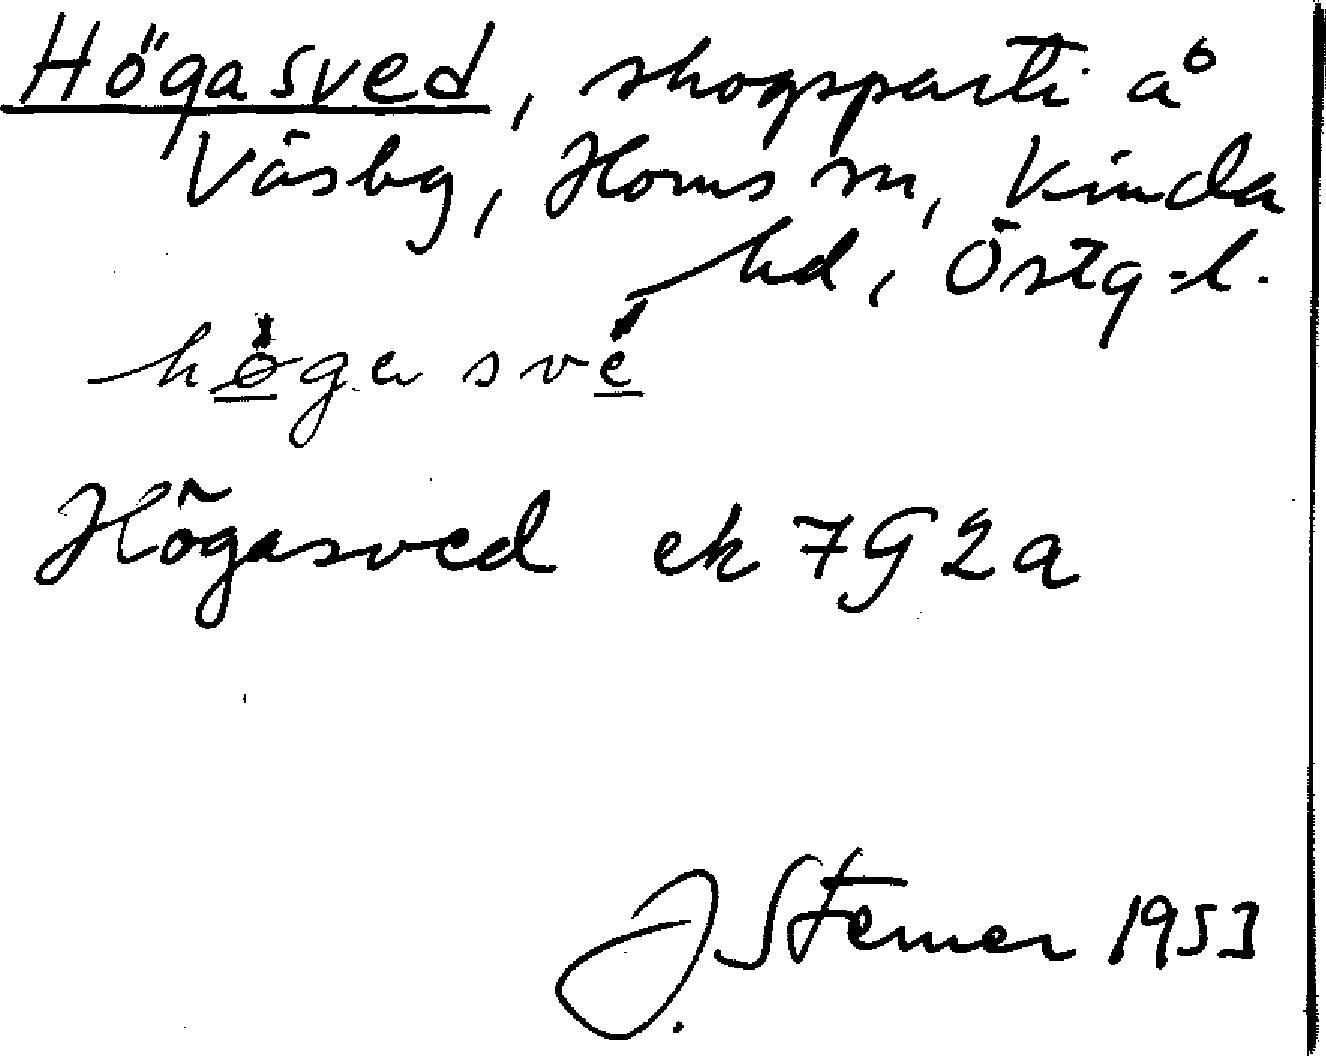 Högasved, skogsparti å
Väsby, Horns sn, Kinda
hd, Östg-l.
högasvé
Högasved ek 7G2a
J. Sterner 1953